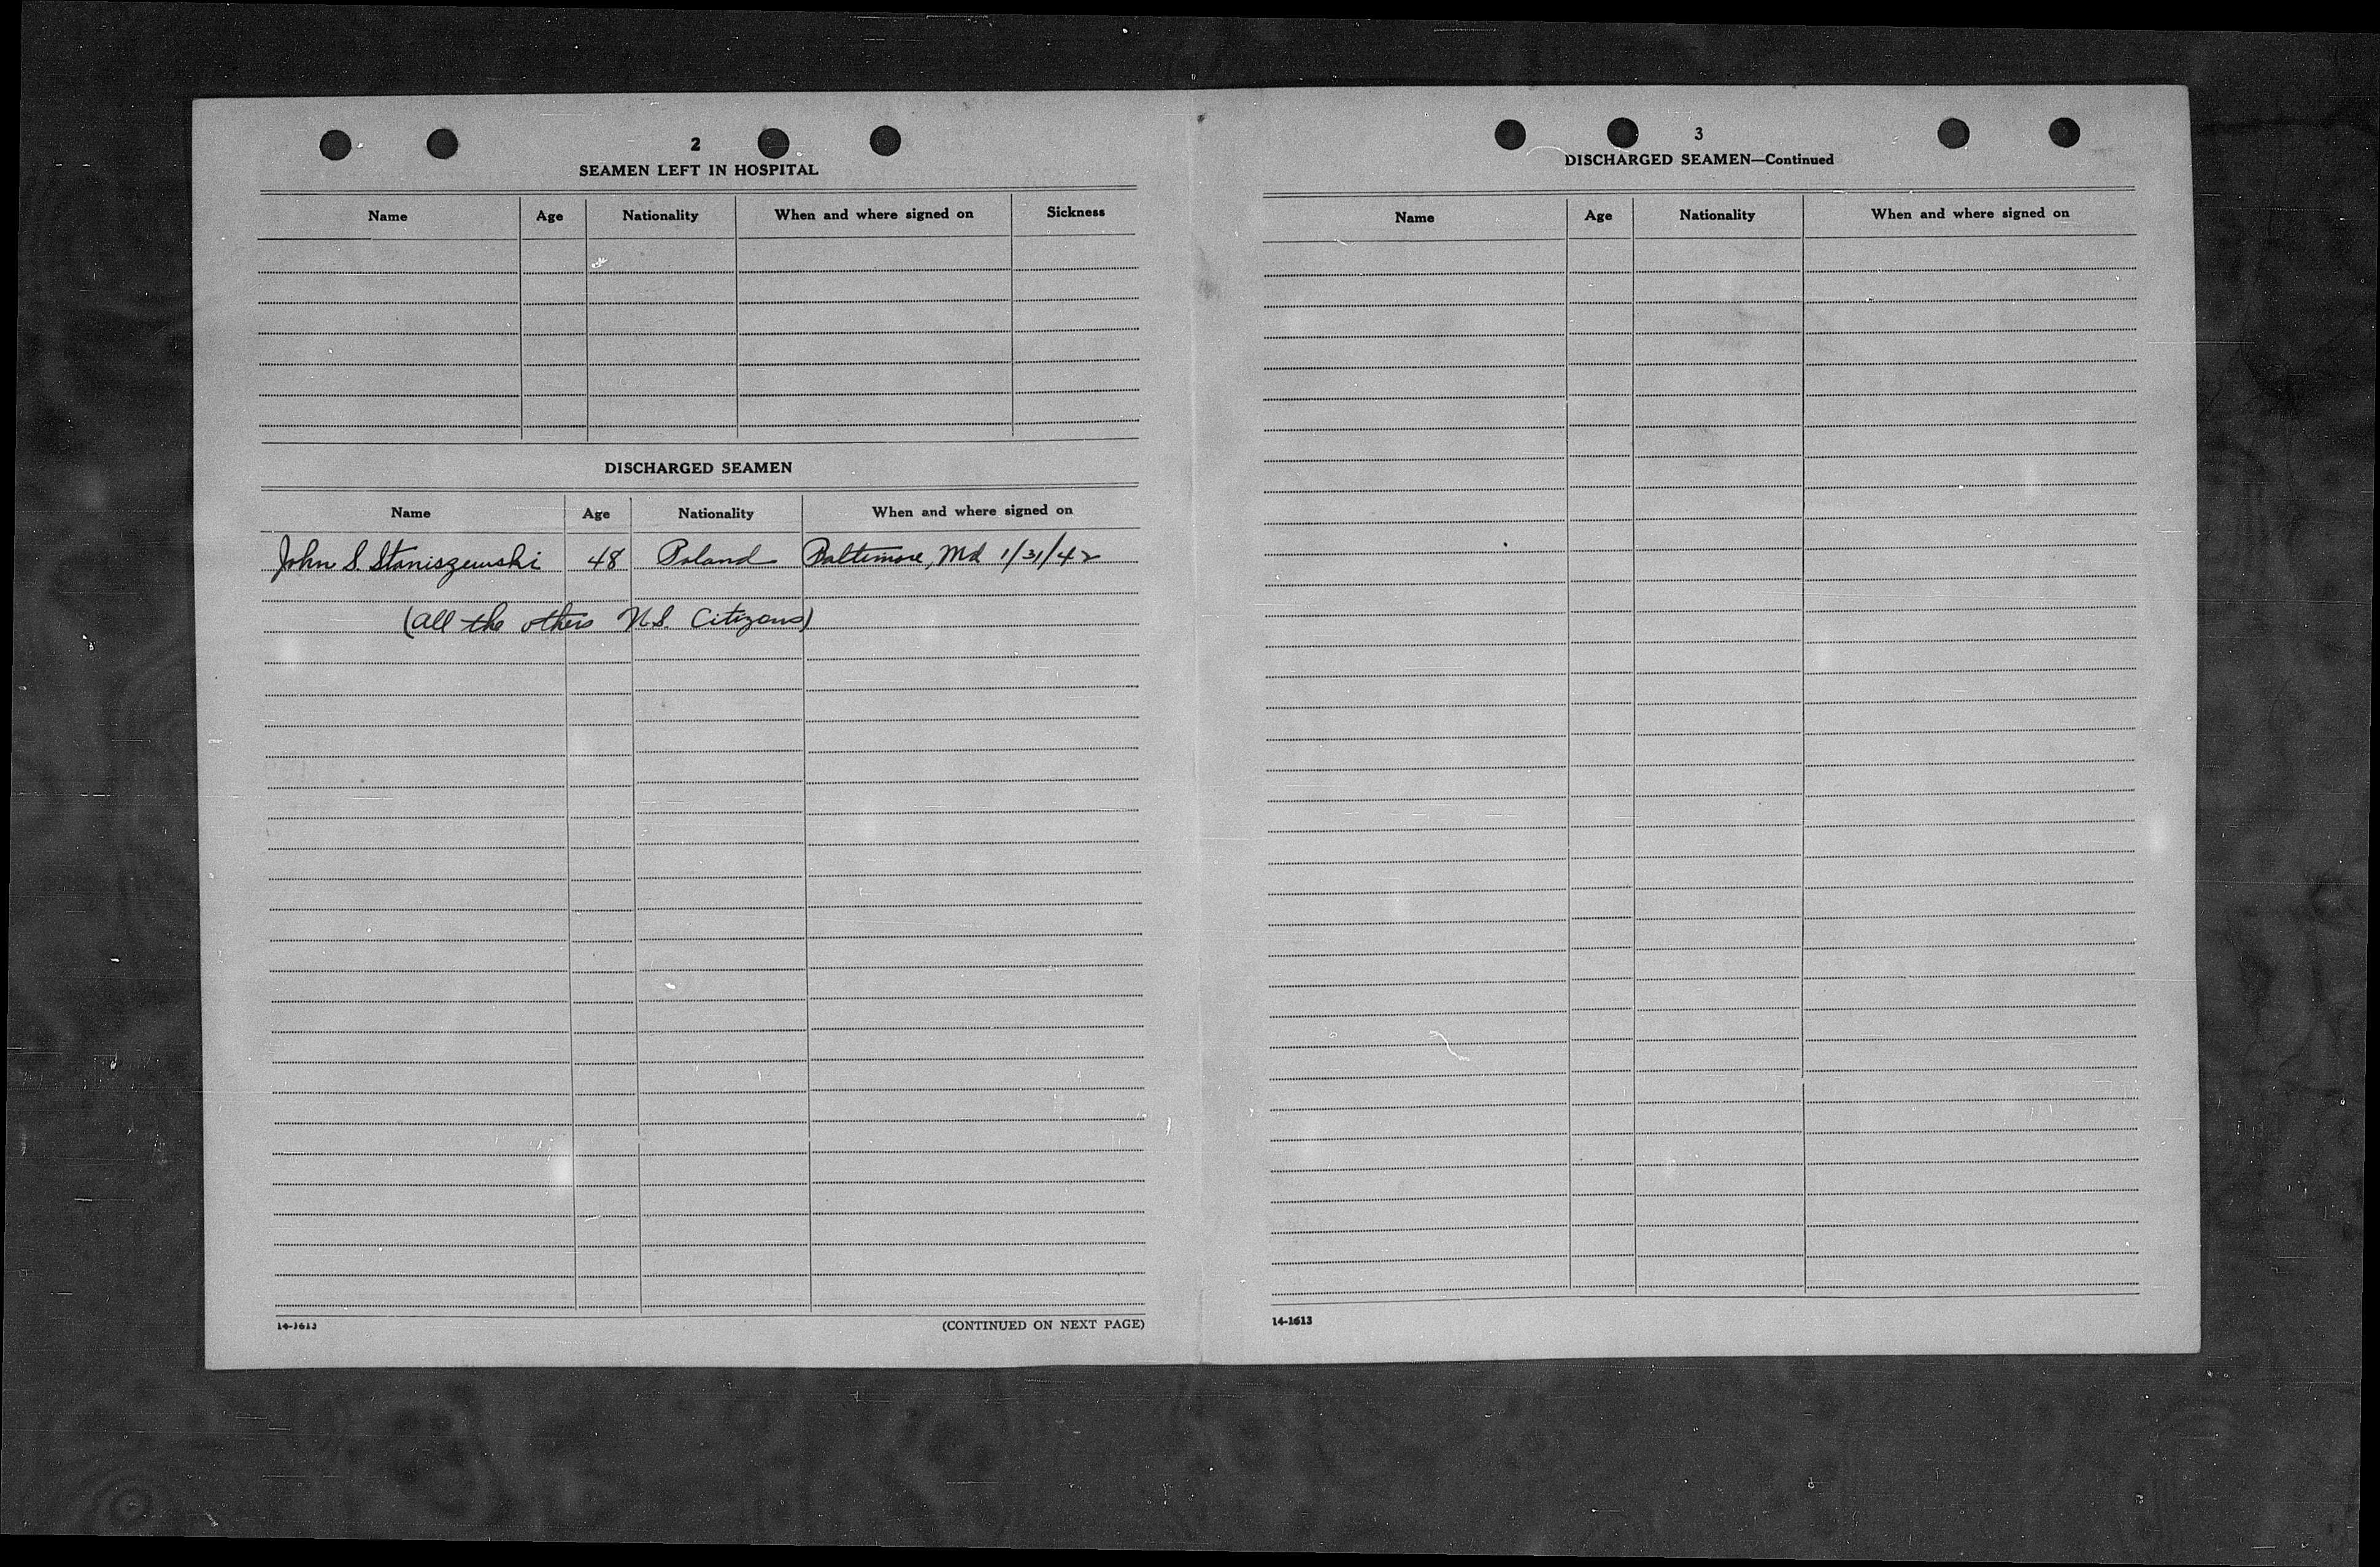 2
SEAMEN LEFT IN HOSPITAL
Name Age Nationality When and where signed on Sickness
DISCHARGED SEAMEN
Name Age Nationality When and where signed on
John S. Staniszewski 48 Poland Baltimore, Md 1/31/42
(all the others U.S. Citizens)
14-1613 (CONTINUED ON NEXT PAGE)
3
DISCHARGED SEAMEN—Continued
Name Age Nationality When and where signed on
14-1613